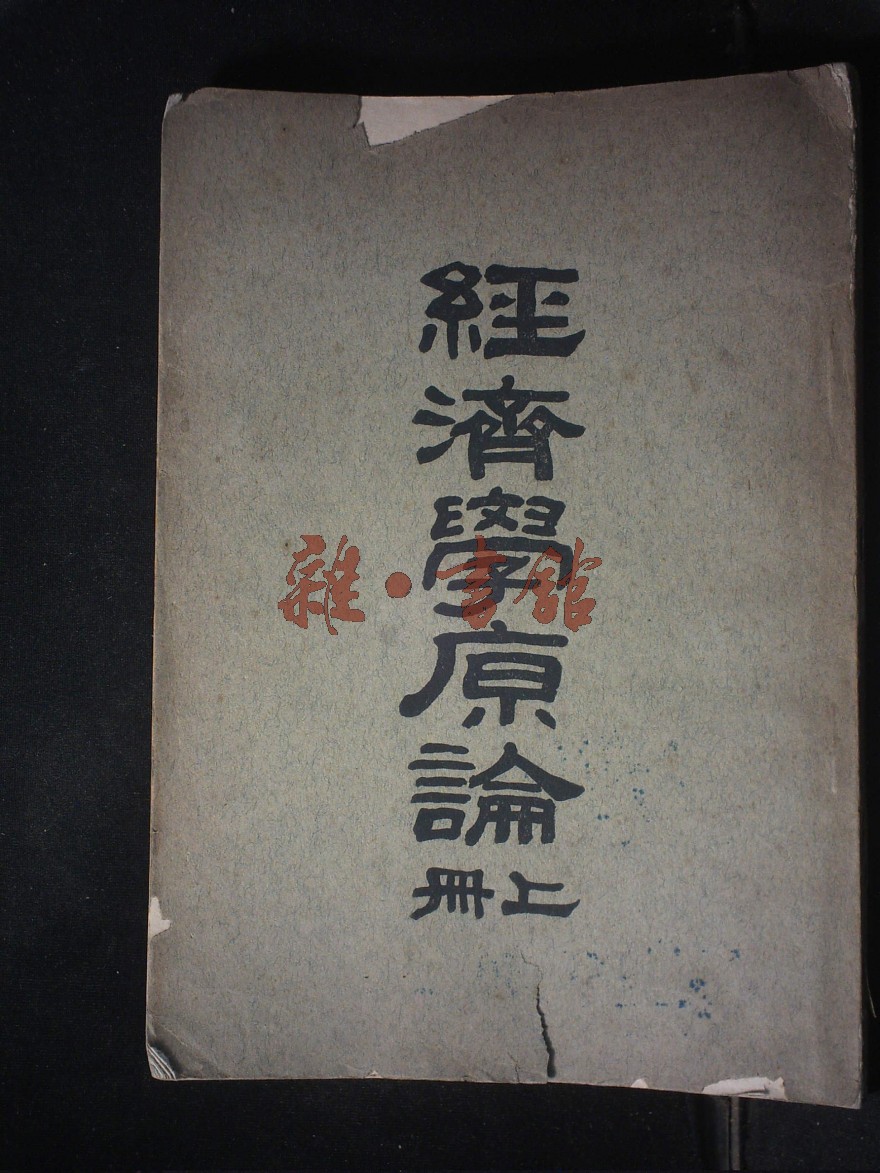 經濟學原論
上冊
雜·書館